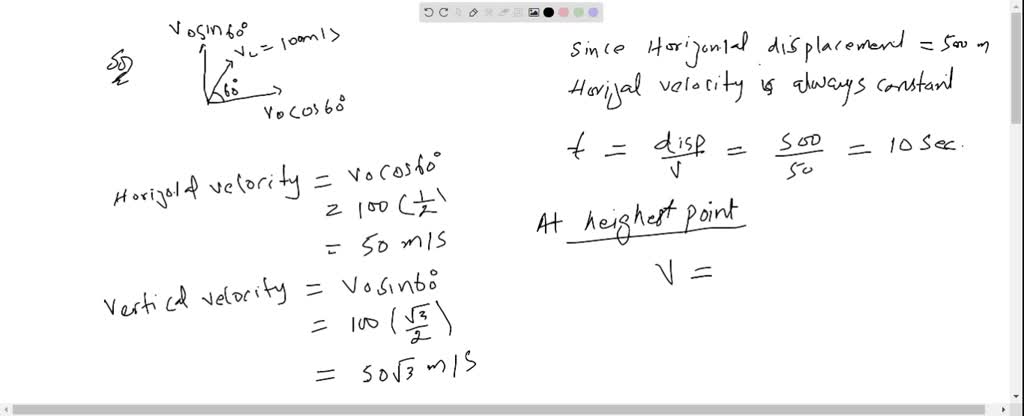 V0sin60°
So
V0 = 100m/s
60°
V0cos60°
Horizotal velocity = V0cos60°
= 100 (1/2)
= 50 m/s
Vertical velocity = V0sin60°
= 100 (√3/2)
= 50√3 m/s
Since Horizontal displacement = 500 m
Horizal velocity is always constant
t = disp/v = 500/50 = 10 sec.
At heighest point
V =